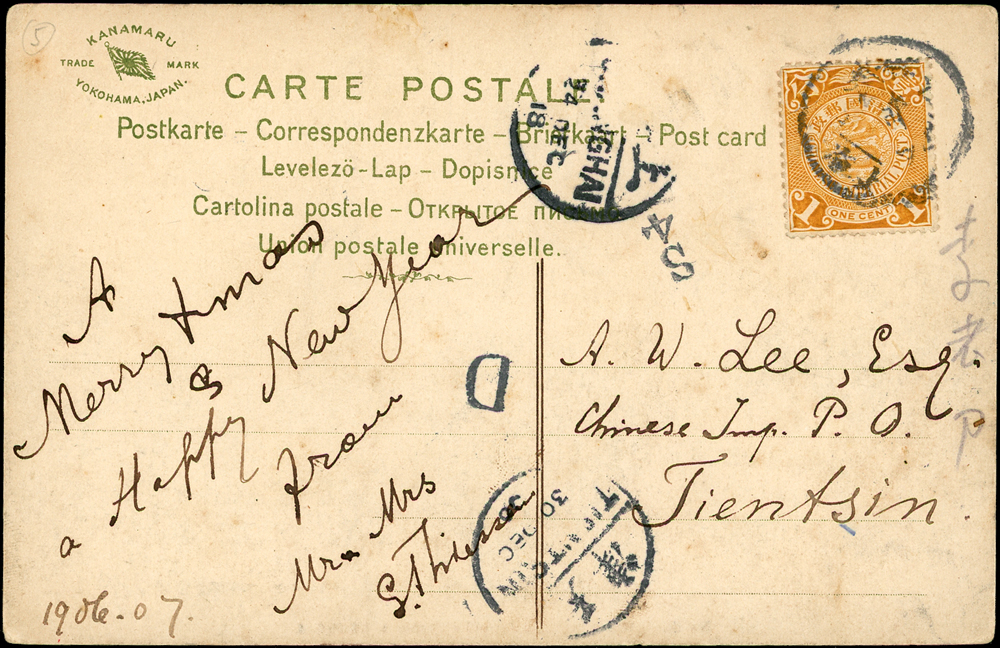 5
KANAMARU
TRADE MARK
YOKOHAMA, JAPAN.
CARTE POSTALE
Postkarte – Correspondenzkarte – Briefkaart – Post card
Levelezö-Lap – Dopisnice
Cartolina postale – Открытое письмо
Union postale universelle.
SHANGHAI
24 DEC
18
上
S4
1 ONE CENT 1
A
Merry Xmas
&
a Happy New Year
from
Mr & Mrs
1906-07.
D
A. W. Lee, Esq.
Chinese Imp. P. O.
Tientsin.
李老
TIENTSIN
30 DEC